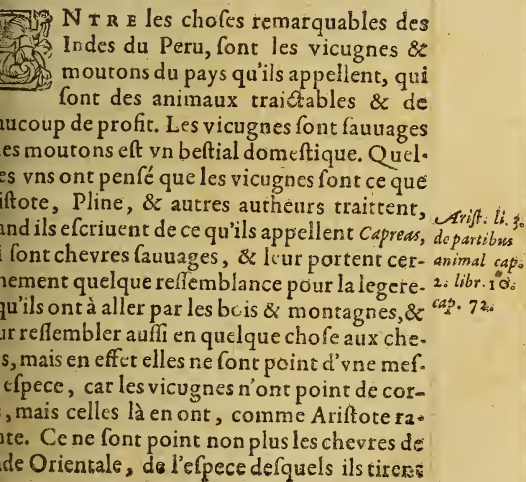 ENTRE les choſes remarquables des
Indes du Peru, ſont les vicugnes &
moutons du pays qu'ils appellent, qui
ſont des animaux traictables & de
aucoup de profit. Les vicugnes ſont ſauuages
es moutons eſt vn beſtial domeſtique. Quel-
es vns ont penſé que les vicugnes ſont ce que
iſtote, Pline, & autres autheurs traittent,
and ils eſcriuent de ce qu'ils appellent Capreas,
i ſont chevres ſauuages, & leur portent cer-
nement quelque reſſemblance pour la legere-
qu'ils ont à aller par les bois & montagnes, &
ur reſſembler auſſi en quelque choſe aux che-
s, mais en effet elles ne ſont point d'vne meſ-
eſpece, car les vicugnes n'ont point de cor-
, mais celles là en ont, comme Ariſtote ra-
nte. Ce ne ſont point non plus les chevres de
de Orientale, de l'eſpece deſquels ils tirent
Ariſt. li. 3.
de partibus
animal cap.
2. libr. 10.
cap. 72.